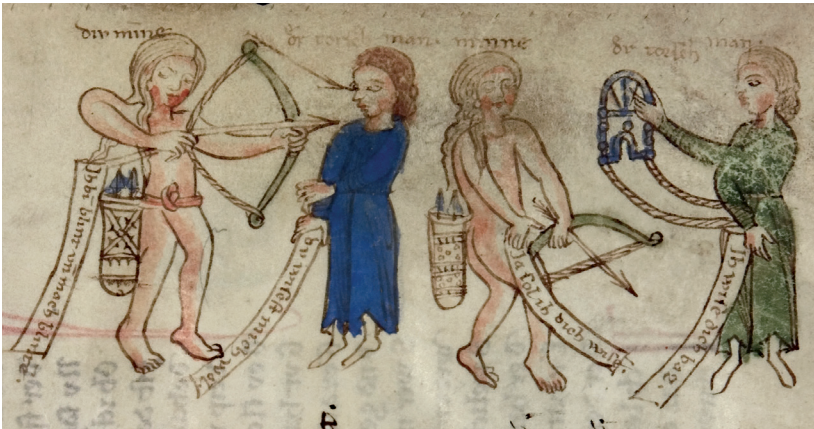 div mine
dr torsch man
minne
dr torsch man
blint vn mach
du wisest mich wol
Ja sol ih dich
Ih wise dich baz.